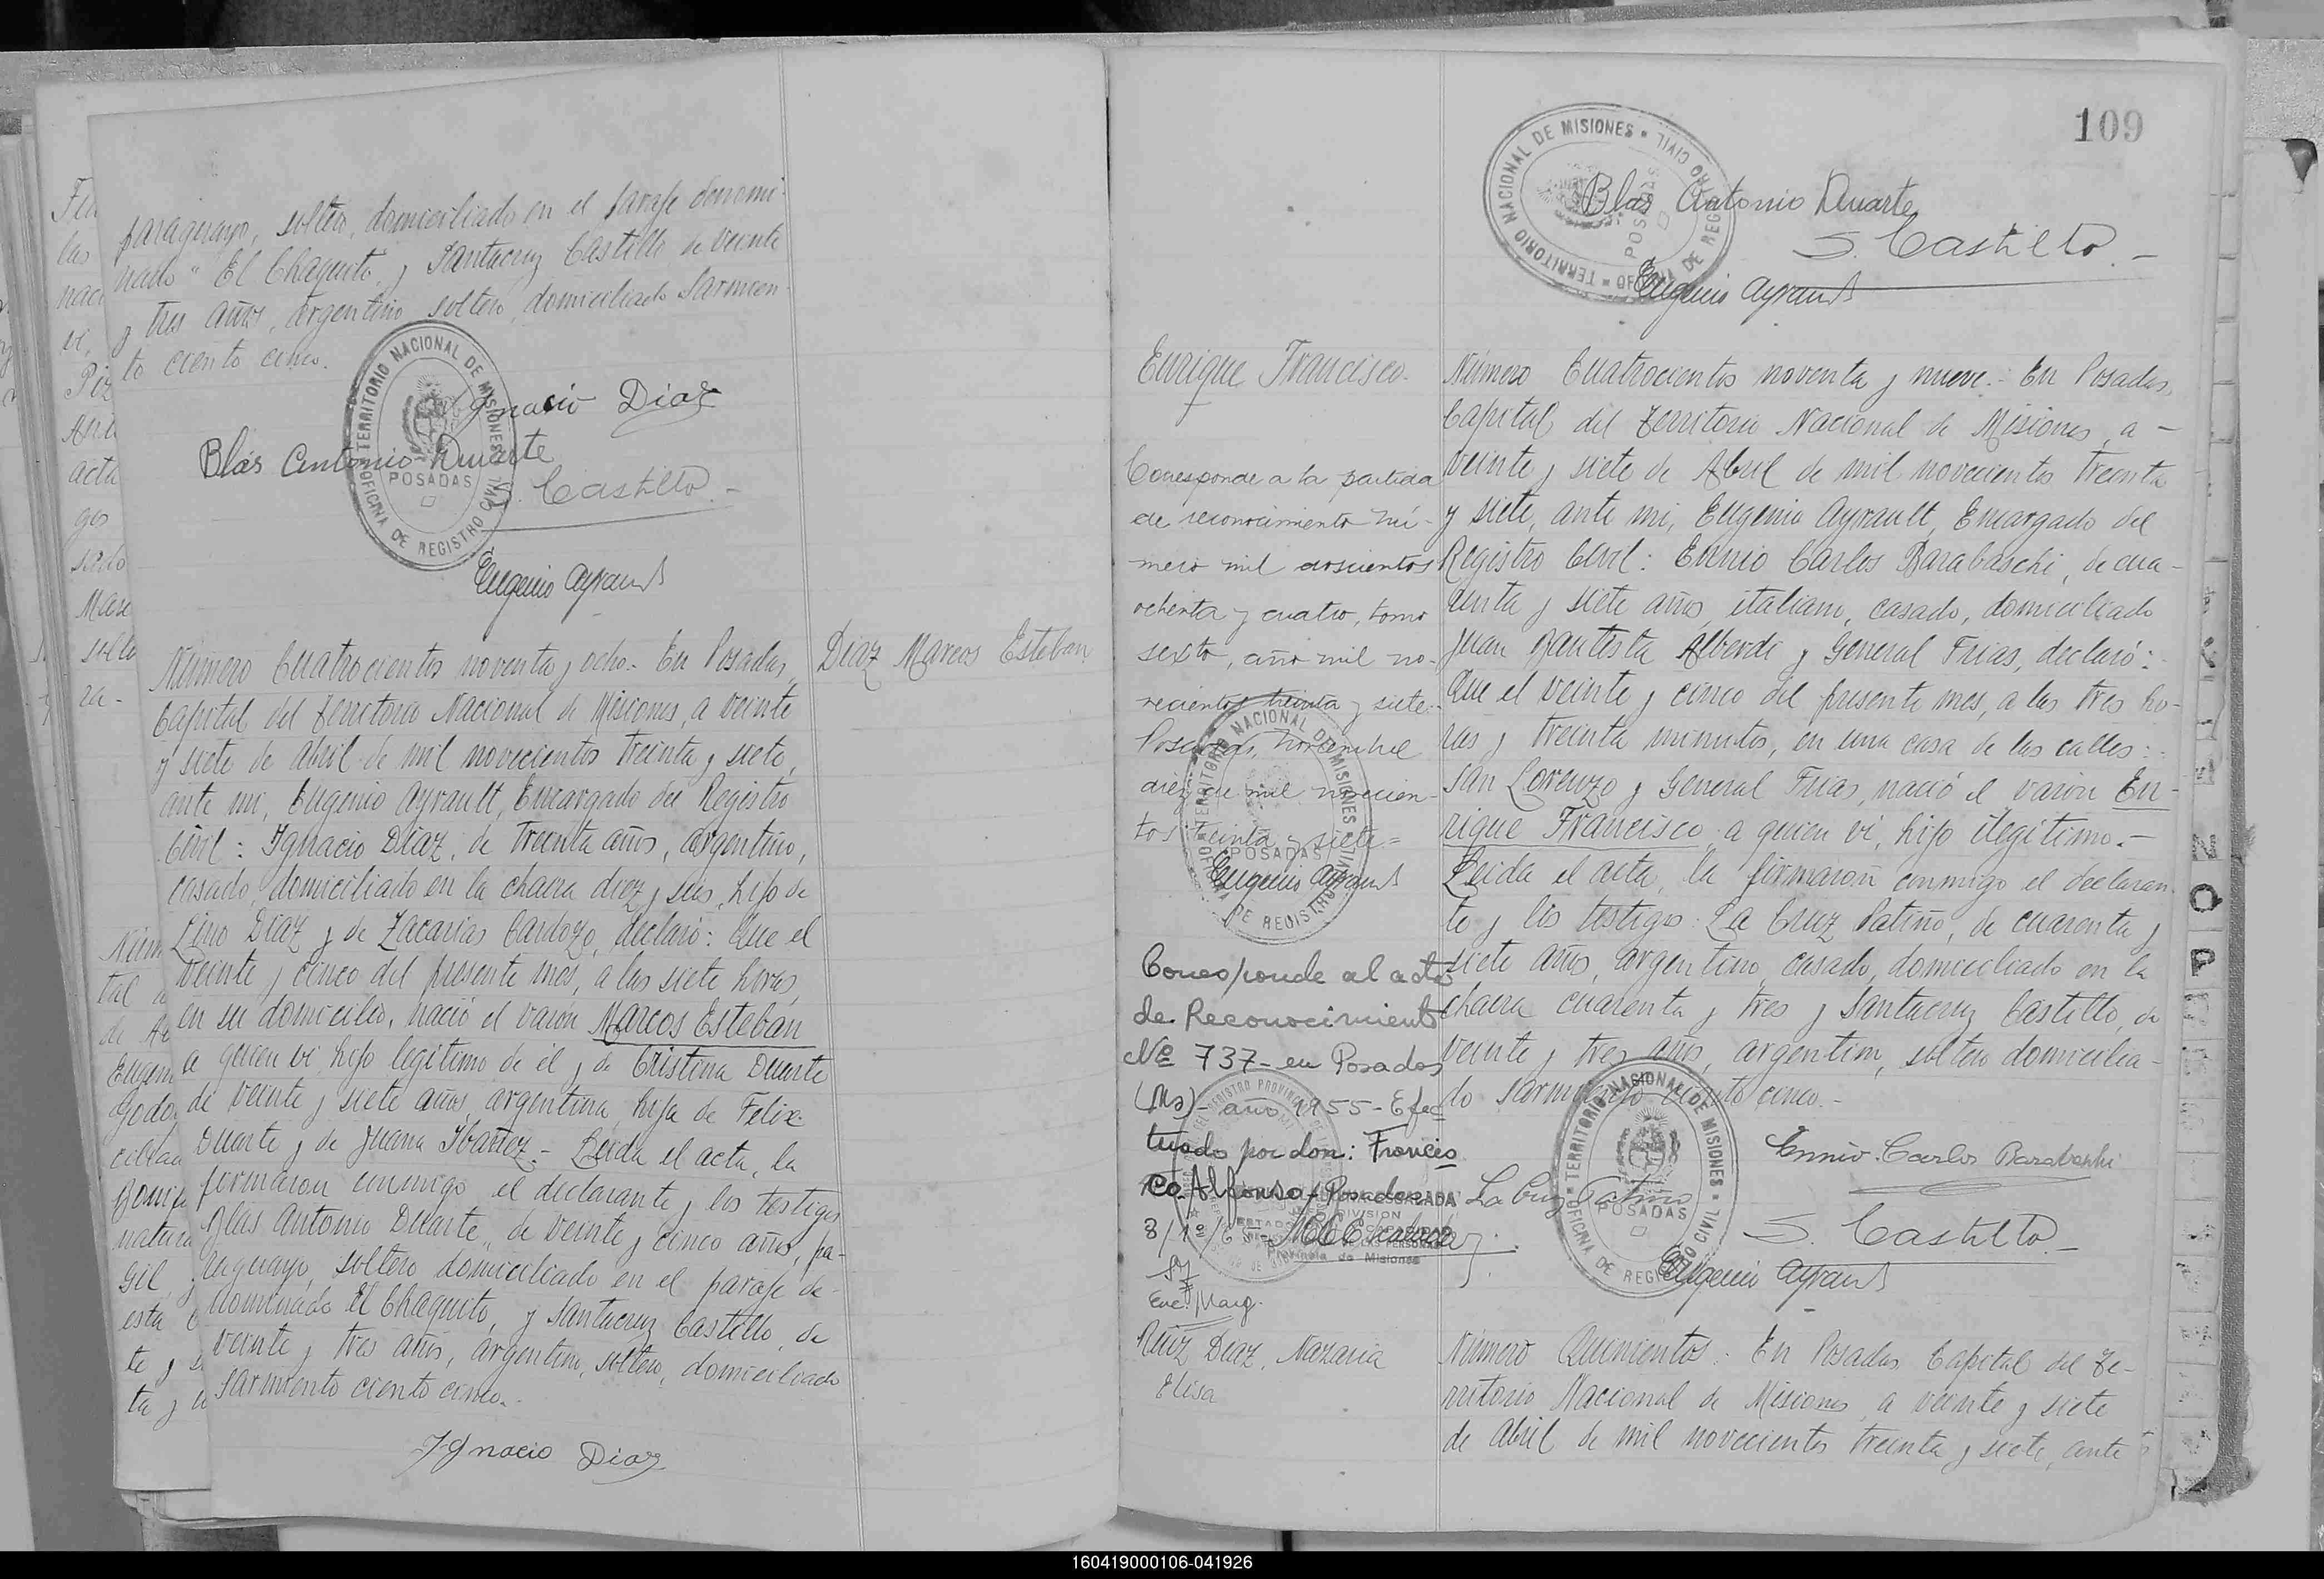 paraguayo, soltero, domiciliado en el paraje denomi-
nado "El Chaquito, y Santacruz Castillo de veinte
y tres años, argentino soltero, domiciliado Sarmien-
to ciento cinco.
TERRITORIO NACIONAL DE MISIONES
OFICINA DE REGISTRO CIVIL
POSADAS
Ignacio Diaz
Blas Antonio Duarte
S. Castillo.-
Eugenio Ayrault
Diaz Marcos Esteban
Número Cuatrocientos noventa y ocho.- En Posadas,
Capital del Territorio Nacional de Misiones, a veinte
y siete de abril de mil novecientos treinta y siete,
ante mi, Eugenio Ayrault, Encargado del Registro
Civil: Ignacio Diaz, de treinta años, argentino,
casado, domiciliado en la chacra diez y seis, hijo de
Lino Diaz y de Zacarias Cardozo, declaró: Que el
veinte y cinco del presente mes, a las siete horas,
en su domicilio, nació el varon Marcos Esteban
a quien vi, hijo legitimo de él y de Cristina Duarte
de veinte y siete años, argentina, hija de Felix
Duarte y de Juana Ibañez.- Leida el acta, la
firmaron conmigo el declarante y los testigos
Blas Antonio Duarte, de veinte y cinco años, pa-
raguayo, soltero domiciliado en el paraje de-
nominado El Chaquito, y Santacruz Castillo, de
veinte y tres años, argentino, soltero, domiciliado
Sarmiento ciento cinco.-
Ignacio Diaz
109
TERRITORIO NACIONAL DE MISIONES
OFICINA DE REGISTRO CIVIL
POSADAS
Blas Antonio Duarte
S. Castillo.-
Eugenio Ayrault
Enrique Francisco.
Corresponde a la partida
de reconocimiento nú-
mero mil doscientos
ochenta y cuatro, tomo
sexto, año mil no-
vecientos treinta y siete.-
Posadas, noviembre
diez de mil novecien-
tos treinta y siete=
Eugenio Ayrault
TERRITORIO NACIONAL DE MISIONES
OFICINA DE REGISTRO CIVIL
POSADAS
Corresponde al acta
de Reconocimiento
Nº 737- en Posadas
(Ms)- año 1955- Efec
tuado por don: Francis
co Alfonso- Posadas
8/1º/65-
Enc. Marg.
Número Cuatrocientos noventa y nueve.- En Posadas,
Capital del Territorio Nacional de Misiones, a -
veinte y siete de Abril de mil novecientos treinta
y siete, ante mi, Eugenio Ayrault, Encargado del
Registro Civil: Ennio Carlos Barabaschi, de cua-
renta y siete años, italiano, casado, domiciliado
Juan Bautista Alberdi y General Frias, declaró:
Que el veinte y cinco del presente mes, a las tres ho-
ras y treinta minutos, en una casa de las calles:
San Lorenzo y General Frias, nació el varon En-
rique Francisco a quien vi, hijo ilegitimo.-
Leida el acta, la firmaron conmigo el declaran-
te y los testigos: La Cruz Patiño, de cuarenta y
siete años, argentino, casado, domiciliado en la
chacra cuarenta y tres y Santacruz Castillo, de
veinte y tres años, argentino, soltero domicilia-
do Sarmiento ciento cinco.-
Ennio Carlos Barabaschi
La Cruz Patiño
S. Castillo
Eugenio Ayrault
TERRITORIO NACIONAL DE MISIONES
OFICINA DE REGISTRO CIVIL
POSADAS
Ruiz Diaz, Nazaria
Elisa
Número Quinientos: En Posadas Capital del Te-
rritorio Nacional de Misiones, a veinte y siete
de Abril de mil novecientos treinta y siete, ante
160419000106-041926